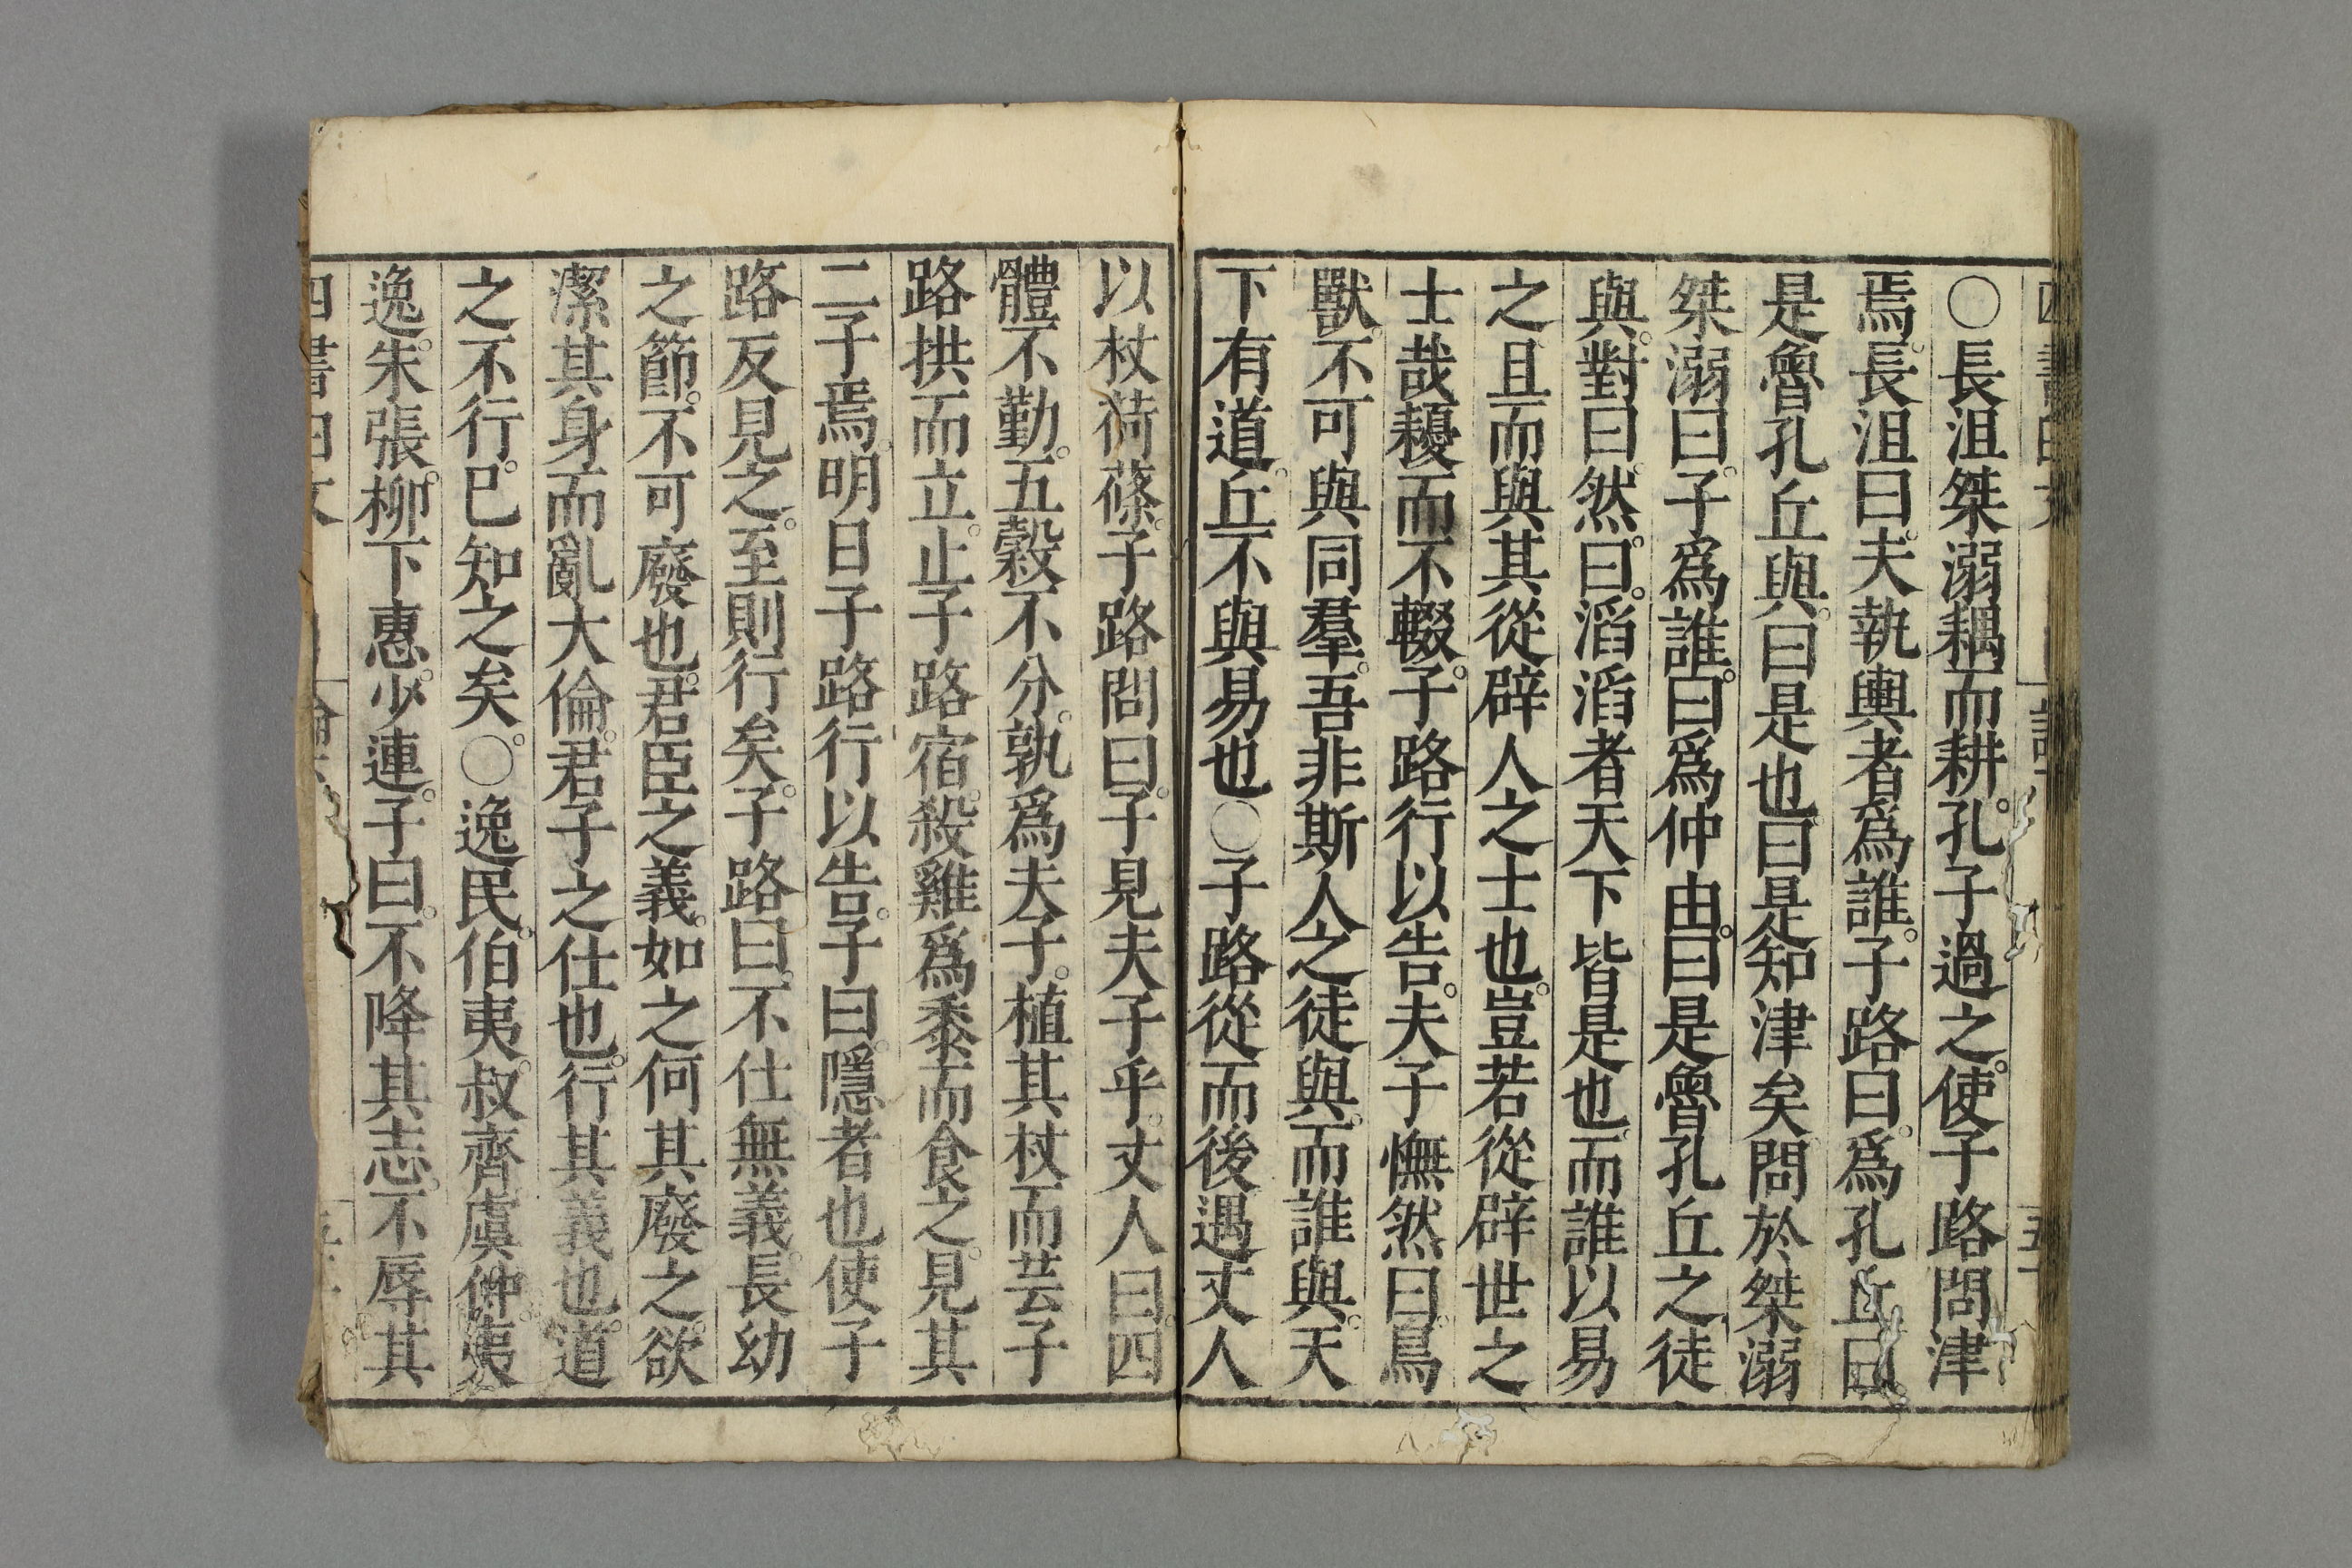 ○長沮桀溺耦而耕。孔子過之。使子路問津
焉。長沮曰。夫執輿者爲誰。子路曰。爲孔丘。曰。
是魯孔丘與。曰是也。曰是知津矣問於桀溺
桀溺曰。子爲誰。曰爲仲由。曰是魯孔丘之徒
與。對曰。然。曰。滔滔者天下皆是也。而誰以易
之且而與其從辟人之士也。豈若從辟世之
士哉耰而不輟。子路行以告。夫子憮然曰。鳥
獸。不可與同羣。吾非斯人之徒與。而誰與。天
下有道。丘不與易也○子路從而後遇丈人
以杖荷蓧。子路問曰。子見夫子乎。丈人曰。四
體不勤。五穀不分。孰爲夫子。植其杖而芸子
路拱而立。止子路宿。殺雞爲黍而食之。見其
二子焉。明日子路行以告。子曰。隱者也使子
路反見之。至則行矣。子路曰。不仕無義。長幼
之節。不可廢也。君臣之義。如之何其廢之。欲
潔其身而亂大倫。君子之仕也。行其義也。道
之不行。已知之矣。○逸民。伯夷。叔齊虞仲。夷
逸。朱張。柳下惠。少連。子曰。不降其志。不辱其